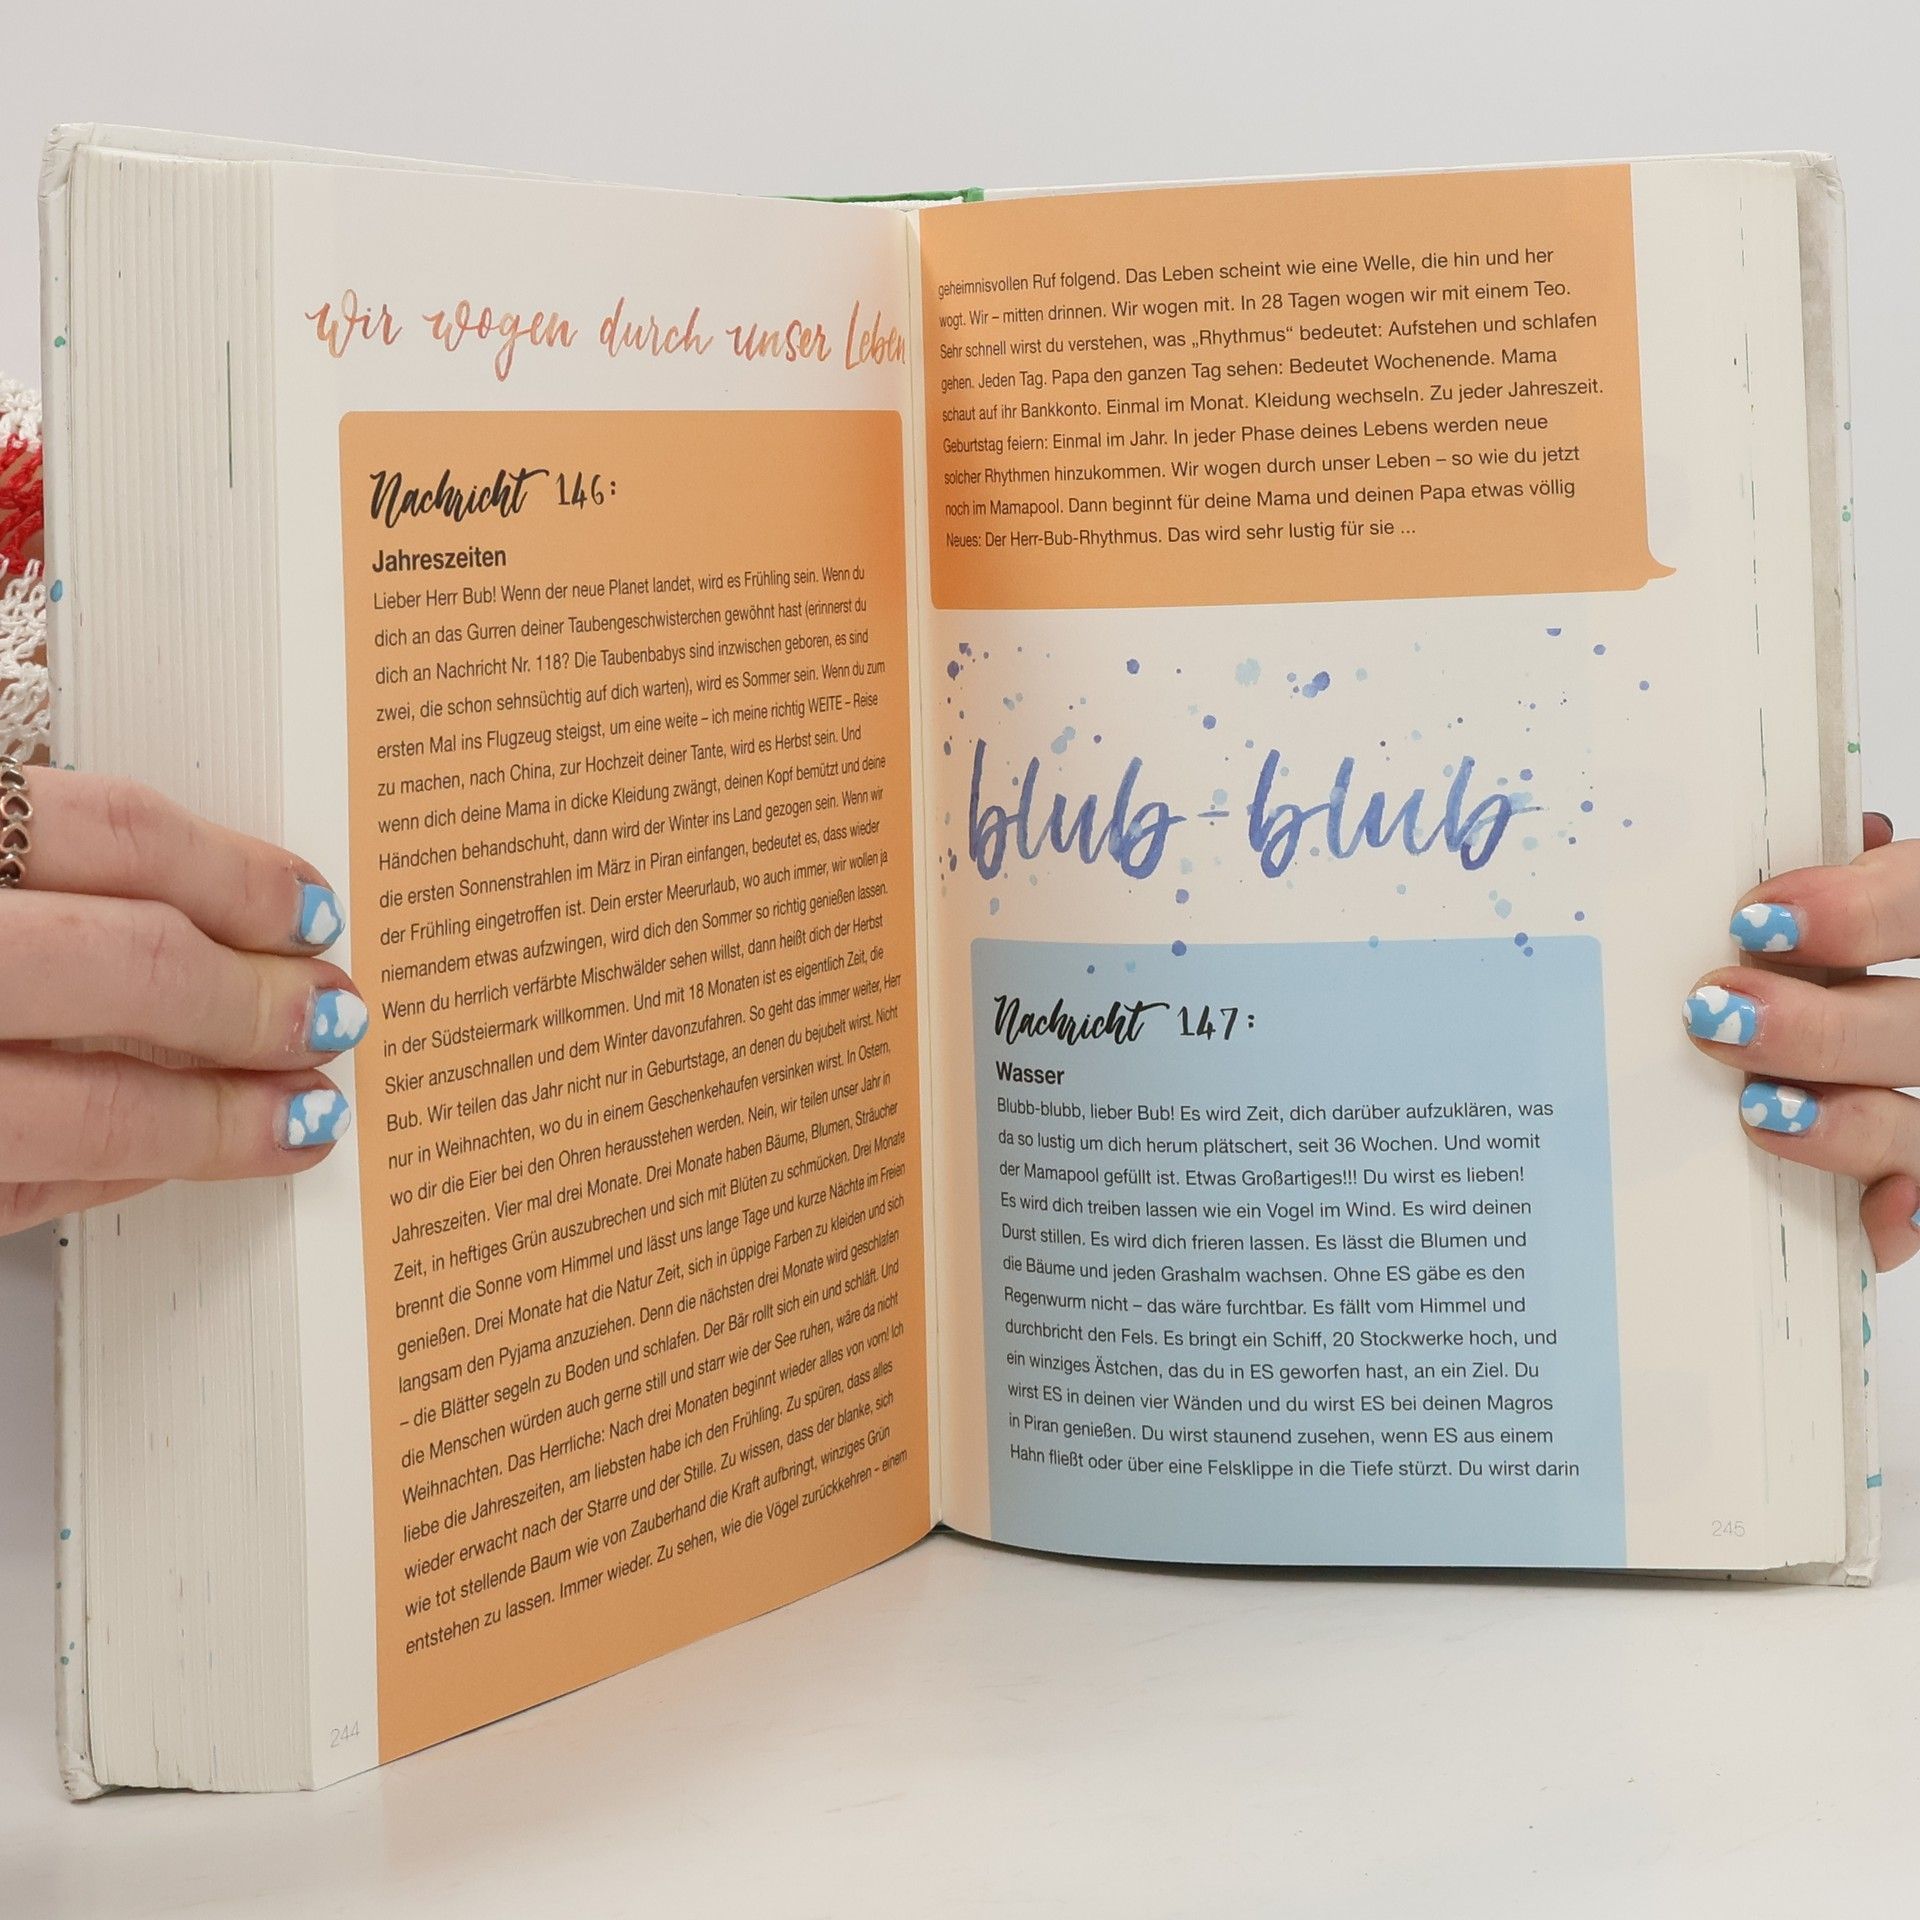 Wir wogen durch unser Leben
Nachricht 146:
Jahreszeiten
Lieber Herr Bub! Wenn der neue Planet landet, wird es Frühling sein. Wenn du
dich an das Gurren deiner Taubengeschwisterchen gewöhnt hast (erinnerst du
dich an Nachricht Nr. 118? Die Taubenbabys sind inzwischen geboren, es sind
zwei, die schon sehnsüchtig auf dich warten), wird es Sommer sein. Wenn du zum
ersten Mal ins Flugzeug steigst, um eine weite – ich meine richtig WEITE – Reise
zu machen, nach China, zur Hochzeit deiner Tante, wird es Herbst sein. Und
wenn dich deine Mama in dicke Kleidung zwängt, deinen Kopf bemützt und deine
Händchen behandschuht, dann wird der Winter ins Land gezogen sein. Wenn wir
die ersten Sonnenstrahlen im März in Piran einfangen, bedeutet es, dass wieder
der Frühling eingetroffen ist. Dein erster Meerurlaub, wo auch immer, wir wollen ja
niemandem etwas aufzwingen, wird dich den Sommer so richtig genießen lassen.
Wenn du herrlich verfärbte Mischwälder sehen willst, dann heißt dich der Herbst
in der Südsteiermark willkommen. Und mit 18 Monaten ist es eigentlich Zeit, die
Skier anzuschnallen und dem Winter davonzufahren. So geht das immer weiter, Herr
Bub. Wir teilen das Jahr nicht nur in Geburtstage, an denen du bejubelt wirst. Nicht
nur in Weihnachten, wo du in einem Geschenkehaufen versinken wirst. In Ostern,
wo dir die Eier bei den Ohren herausstehen werden. Nein, wir teilen unser Jahr in
Jahreszeiten. Vier mal drei Monate. Drei Monate haben Bäume, Blumen, Sträucher
Zeit, in heftiges Grün auszubrechen und sich mit Blüten zu schmücken. Drei Monate
brennt die Sonne vom Himmel und lässt uns lange Tage und kurze Nächte im Freien
genießen. Drei Monate hat die Natur Zeit, sich in üppige Farben zu kleiden und sich
langsam den Pyjama anzuziehen. Denn die nächsten drei Monate wird geschlafen
– die Blätter segeln zu Boden und schlafen. Der Bär rollt sich ein und schläft. Und
die Menschen würden auch gerne still und starr wie der See ruhen, wäre da nicht
Weihnachten. Das Herrliche: Nach drei Monaten beginnt wieder alles von vorn! Ich
liebe die Jahreszeiten, am liebsten habe ich den Frühling. Zu spüren, dass alles
wieder erwacht nach der Starre und der Stille. Zu wissen, dass der blanke, sich
wie tot stellende Baum wie von Zauberhand die Kraft aufbringt, winziges Grün
entstehen zu lassen. Immer wieder. Zu sehen, wie die Vögel zurückkehren – einem
244
geheimnisvollen Ruf folgend. Das Leben scheint wie eine Welle, die hin und her
wogt. Wir – mitten drinnen. Wir wogen mit. In 28 Tagen wogen wir mit einem Teo.
Sehr schnell wirst du verstehen, was „Rhythmus“ bedeutet: Aufstehen und schlafen
gehen. Jeden Tag. Papa den ganzen Tag sehen: Bedeutet Wochenende. Mama
schaut auf ihr Bankkonto. Einmal im Monat. Kleidung wechseln. Zu jeder Jahreszeit.
Geburtstag feiern: Einmal im Jahr. In jeder Phase deines Lebens werden neue
solcher Rhythmen hinzukommen. Wir wogen durch unser Leben – so wie du jetzt
noch im Mamapool. Dann beginnt für deine Mama und deinen Papa etwas völlig
Neues: Der Herr-Bub-Rhythmus. Das wird sehr lustig für sie ...
blub-blub
Nachricht 147:
Wasser
Blubb-blubb, lieber Bub! Es wird Zeit, dich darüber aufzuklären, was
da so lustig um dich herum plätschert, seit 36 Wochen. Und womit
der Mamapool gefüllt ist. Etwas Großartiges!!! Du wirst es lieben!
Es wird dich treiben lassen wie ein Vogel im Wind. Es wird deinen
Durst stillen. Es wird dich frieren lassen. Es lässt die Blumen und
die Bäume und jeden Grashalm wachsen. Ohne ES gäbe es den
Regenwurm nicht – das wäre furchtbar. Es fällt vom Himmel und
durchbricht den Fels. Es bringt ein Schiff, 20 Stockwerke hoch, und
ein winziges Ästchen, das du in ES geworfen hast, an ein Ziel. Du
wirst ES in deinen vier Wänden und du wirst ES bei deinen Magros
in Piran genießen. Du wirst staunend zusehen, wenn ES aus einem
Hahn fließt oder über eine Felsklippe in die Tiefe stürzt. Du wirst darin
245